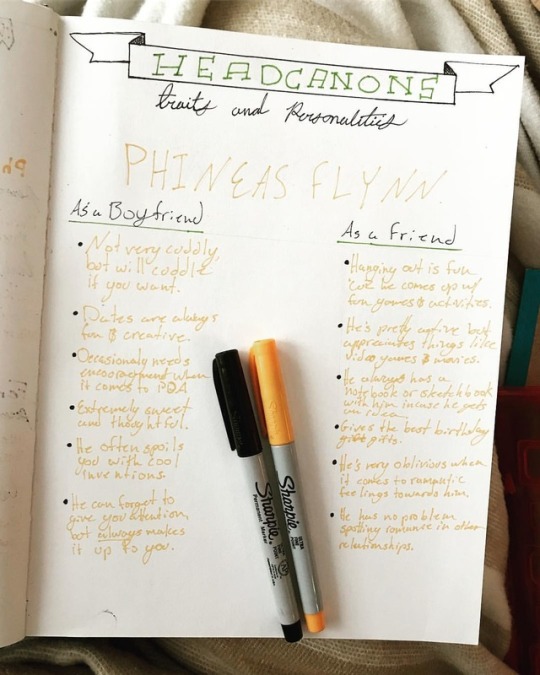 HEADCANONS
traits and Personalities
PHINEAS FLYNN
As a Boyfriend
• Not very cuddly,
but will cuddle
if you want.
• Dates are always
fun & creative.
• Occasionaly needs
encouragement when
it comes to PDA
• Extremely sweet
and thoughtful.
• He often spoils
you with cool
inventions.
• He can forget to
give you attention,
but always makes
it up to you.
As a Friend
• Hanging out is fun
he comes up w/
fun games & activities.
• He's pretty active but
appreciates things like
video games & movies.
• He always has a
notebook or sketchbook
with him incase he gets
an idea.
• Gives the best birthday
gifts.
• He's very oblivious when
it comes to romantic
feelings towards him.
• He has no problem
spotting romance in other
relationships.
Sharpie
Sharpie